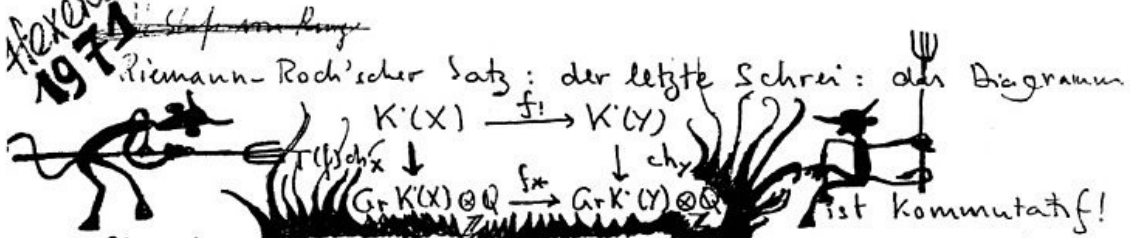 Hexen
1971
Riemann-Roch'scher Satz: der letzte Schrei: das Diagramm
K˙(X) —f!→ K˙(Y)
T(f)ch_X ↓ ↓ ch_Y
Gr K˙(X)⊗Q —f*→ Gr K˙(Y)⊗Q
ist kommutatif!